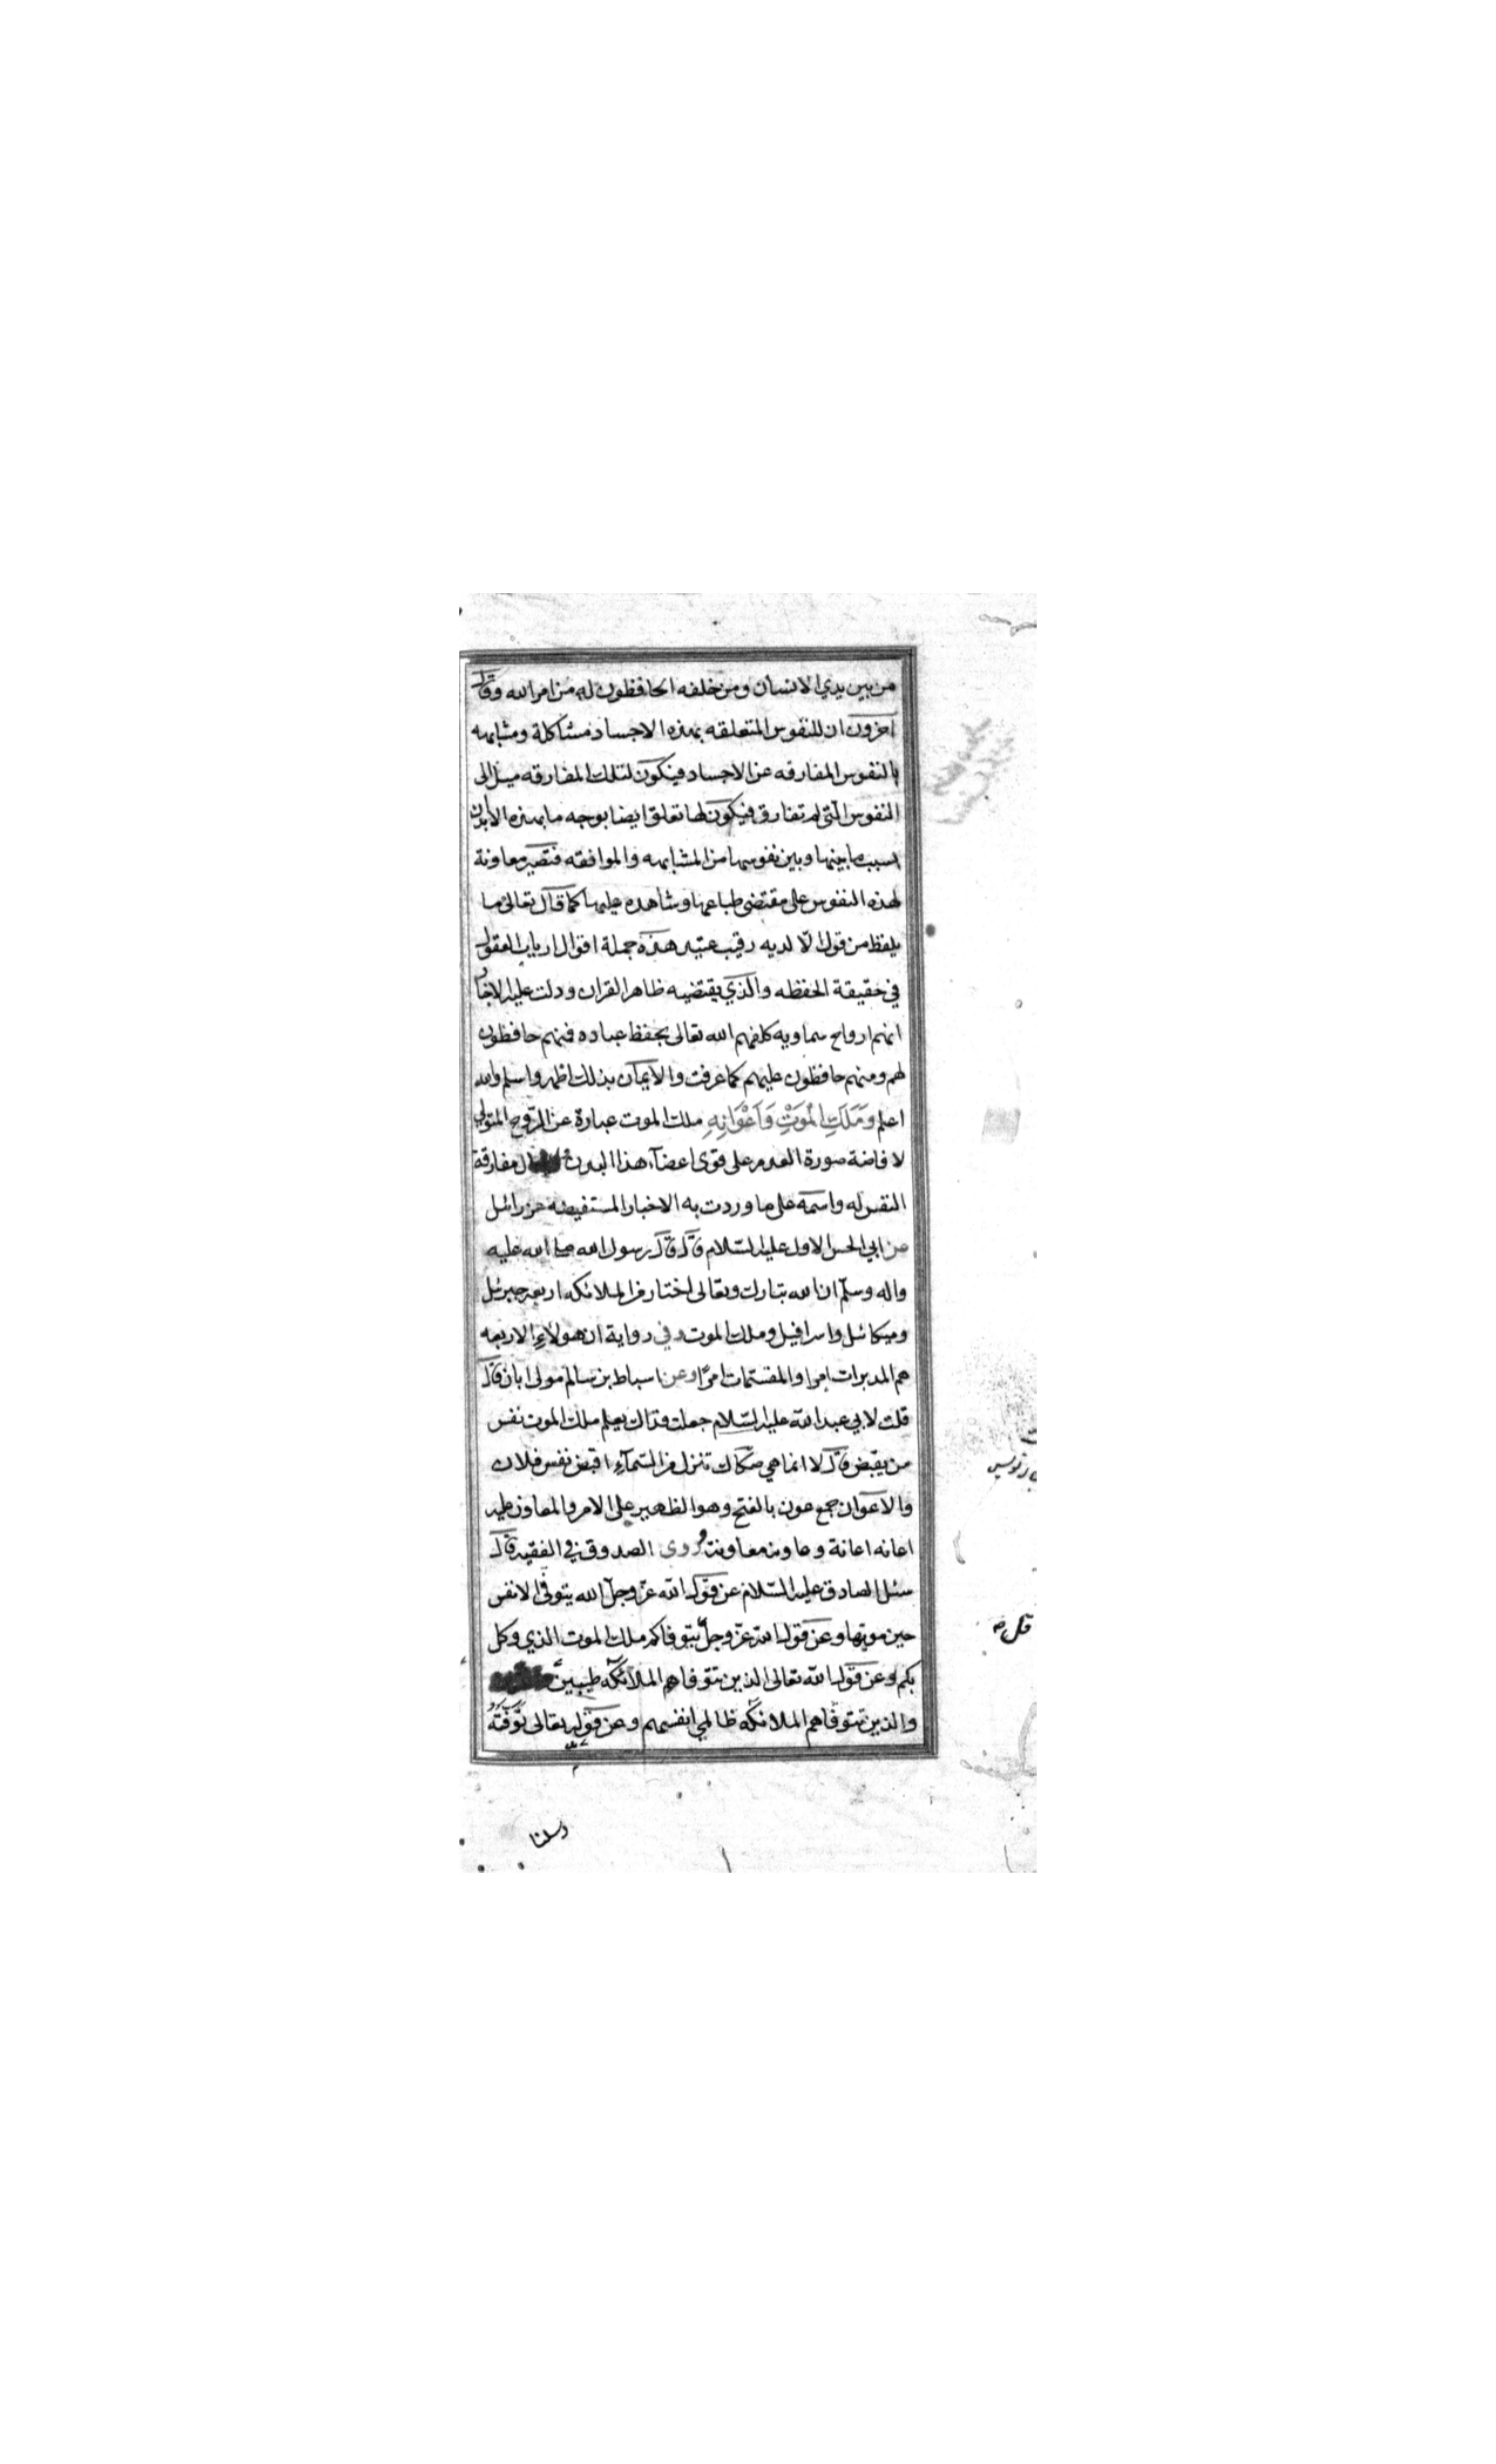 من بين يدي الانسان ومن خلفه الحافظون له من امر الله وقال
اخرون ان للنفوس المتعلقه بهذه الاجساد مشاكلة ومشابهه
بالنفوس المفارقه عن الاجساد فيكون لتلك المفارقه ميل الى
النفوس التي لم تفارق فيكون لها تعلق ايضا بوجه ما بهذه الابدان
بسبب ما بينها وبين نفوسها من المشابهه والموافقه فتصير معاونة
لهذه النفوس على مقتضى طباعها وشاهده عليها كما قال تعالى ما
يلفظ من قول الّا لديه رقيب عتيد هذه جملة اقوال ارباب العقول
في حقيقة الحفظه والذي يقتضيه ظاهر القران ودلت عليه الاخبار
انهم ارواح سماويه كلفهم الله تعالى بحفظ عباده فمنهم حافظون
لهم ومنهم حافظون عليهم كما عرفت والايمان بذلك اظهر واسلم والله
اعلم وَمَلَكِ الْمَوْتِ وَاَعْوَانِهِ ملك الموت عبارة عن الرّوح المتولي
لافاضة صورة العدم على قوى اعضآء هذا البدن مفارقة
النفس له واسمه على ما وردت به الاخبار المستفيضه عزرائيل
عن ابي الحسن الاول عليه السّلام قال قال رسول الله صلى الله عليه
واله وسلّم ان الله تبارك وتعالى اختار من الملائكه اربعه جبرئيل
وميكائيل واسرافيل وملك الموت وفي رواية ان هولاء الاربعه
هم المدبرات امرا والمقسّمات امرًا وعن اسباط بن سالم مولى ابان قال
قلت لابي عبد الله عليه السّلام جعلت فداك يعلم ملك الموت نفس
من يقبض قال لا انما هي صكاك تنزل من السّمآء اقبض نفس فلان
والاعوان جمع عون بالفتح وهو الظهير على الامر والمعاون عليه
اعانه اعانة وعاونه معاونة وروى الصدوق في الفقيه قال
سئل الصادق عليه السّلام عن قول الله عزّ وجلّ الله يتوفى الانفس
حين موتها وعن قول الله عزّ وجلّ يتوفاكم ملك الموت الذي وكل
بكم وعن قول الله تعالى الذين تتوفاهم الملائكه طيبين
والذين تتوفاهم الملائكه ظالمي انفسهم وعن قوله تعالى توفته
رسلنا